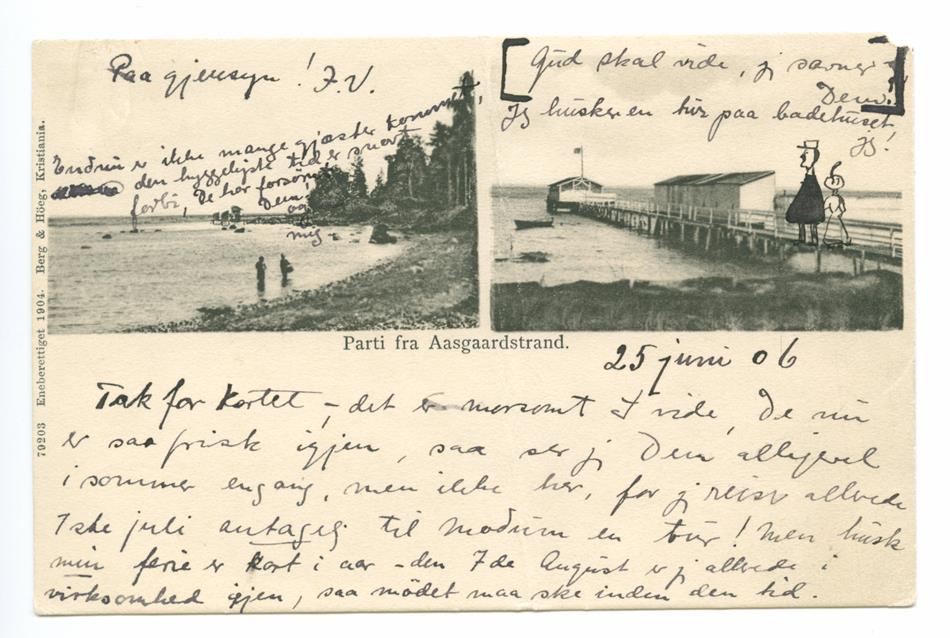 Paa gjensyn! J.V.
[Gud skal vide, jeg savner
Dem.]
Jeg husker en tur paa badehuset!
Endnu er ikke mange gjæster kommet,
den hyggeligste tid er snart
forbi, De har forsømt
Dem
og
mig
79203 Eneberettiget 1904. Berg & Höeg, Kristiania.
Parti fra Aasgaardstrand.
25 juni 06
Tak for kortet – det er morsomt I vide, De nu
er saa frisk igjen, saa ser jeg Dem alligevel
i sommer engang, men ikke her, for jeg reiser allerede
7ste juli antagelig til Modum en tur! Men husk
min ferie er kort i aar – den 7de August er jeg allerede i
virksomhed igjen, saa mödet maa ske inden den tid.